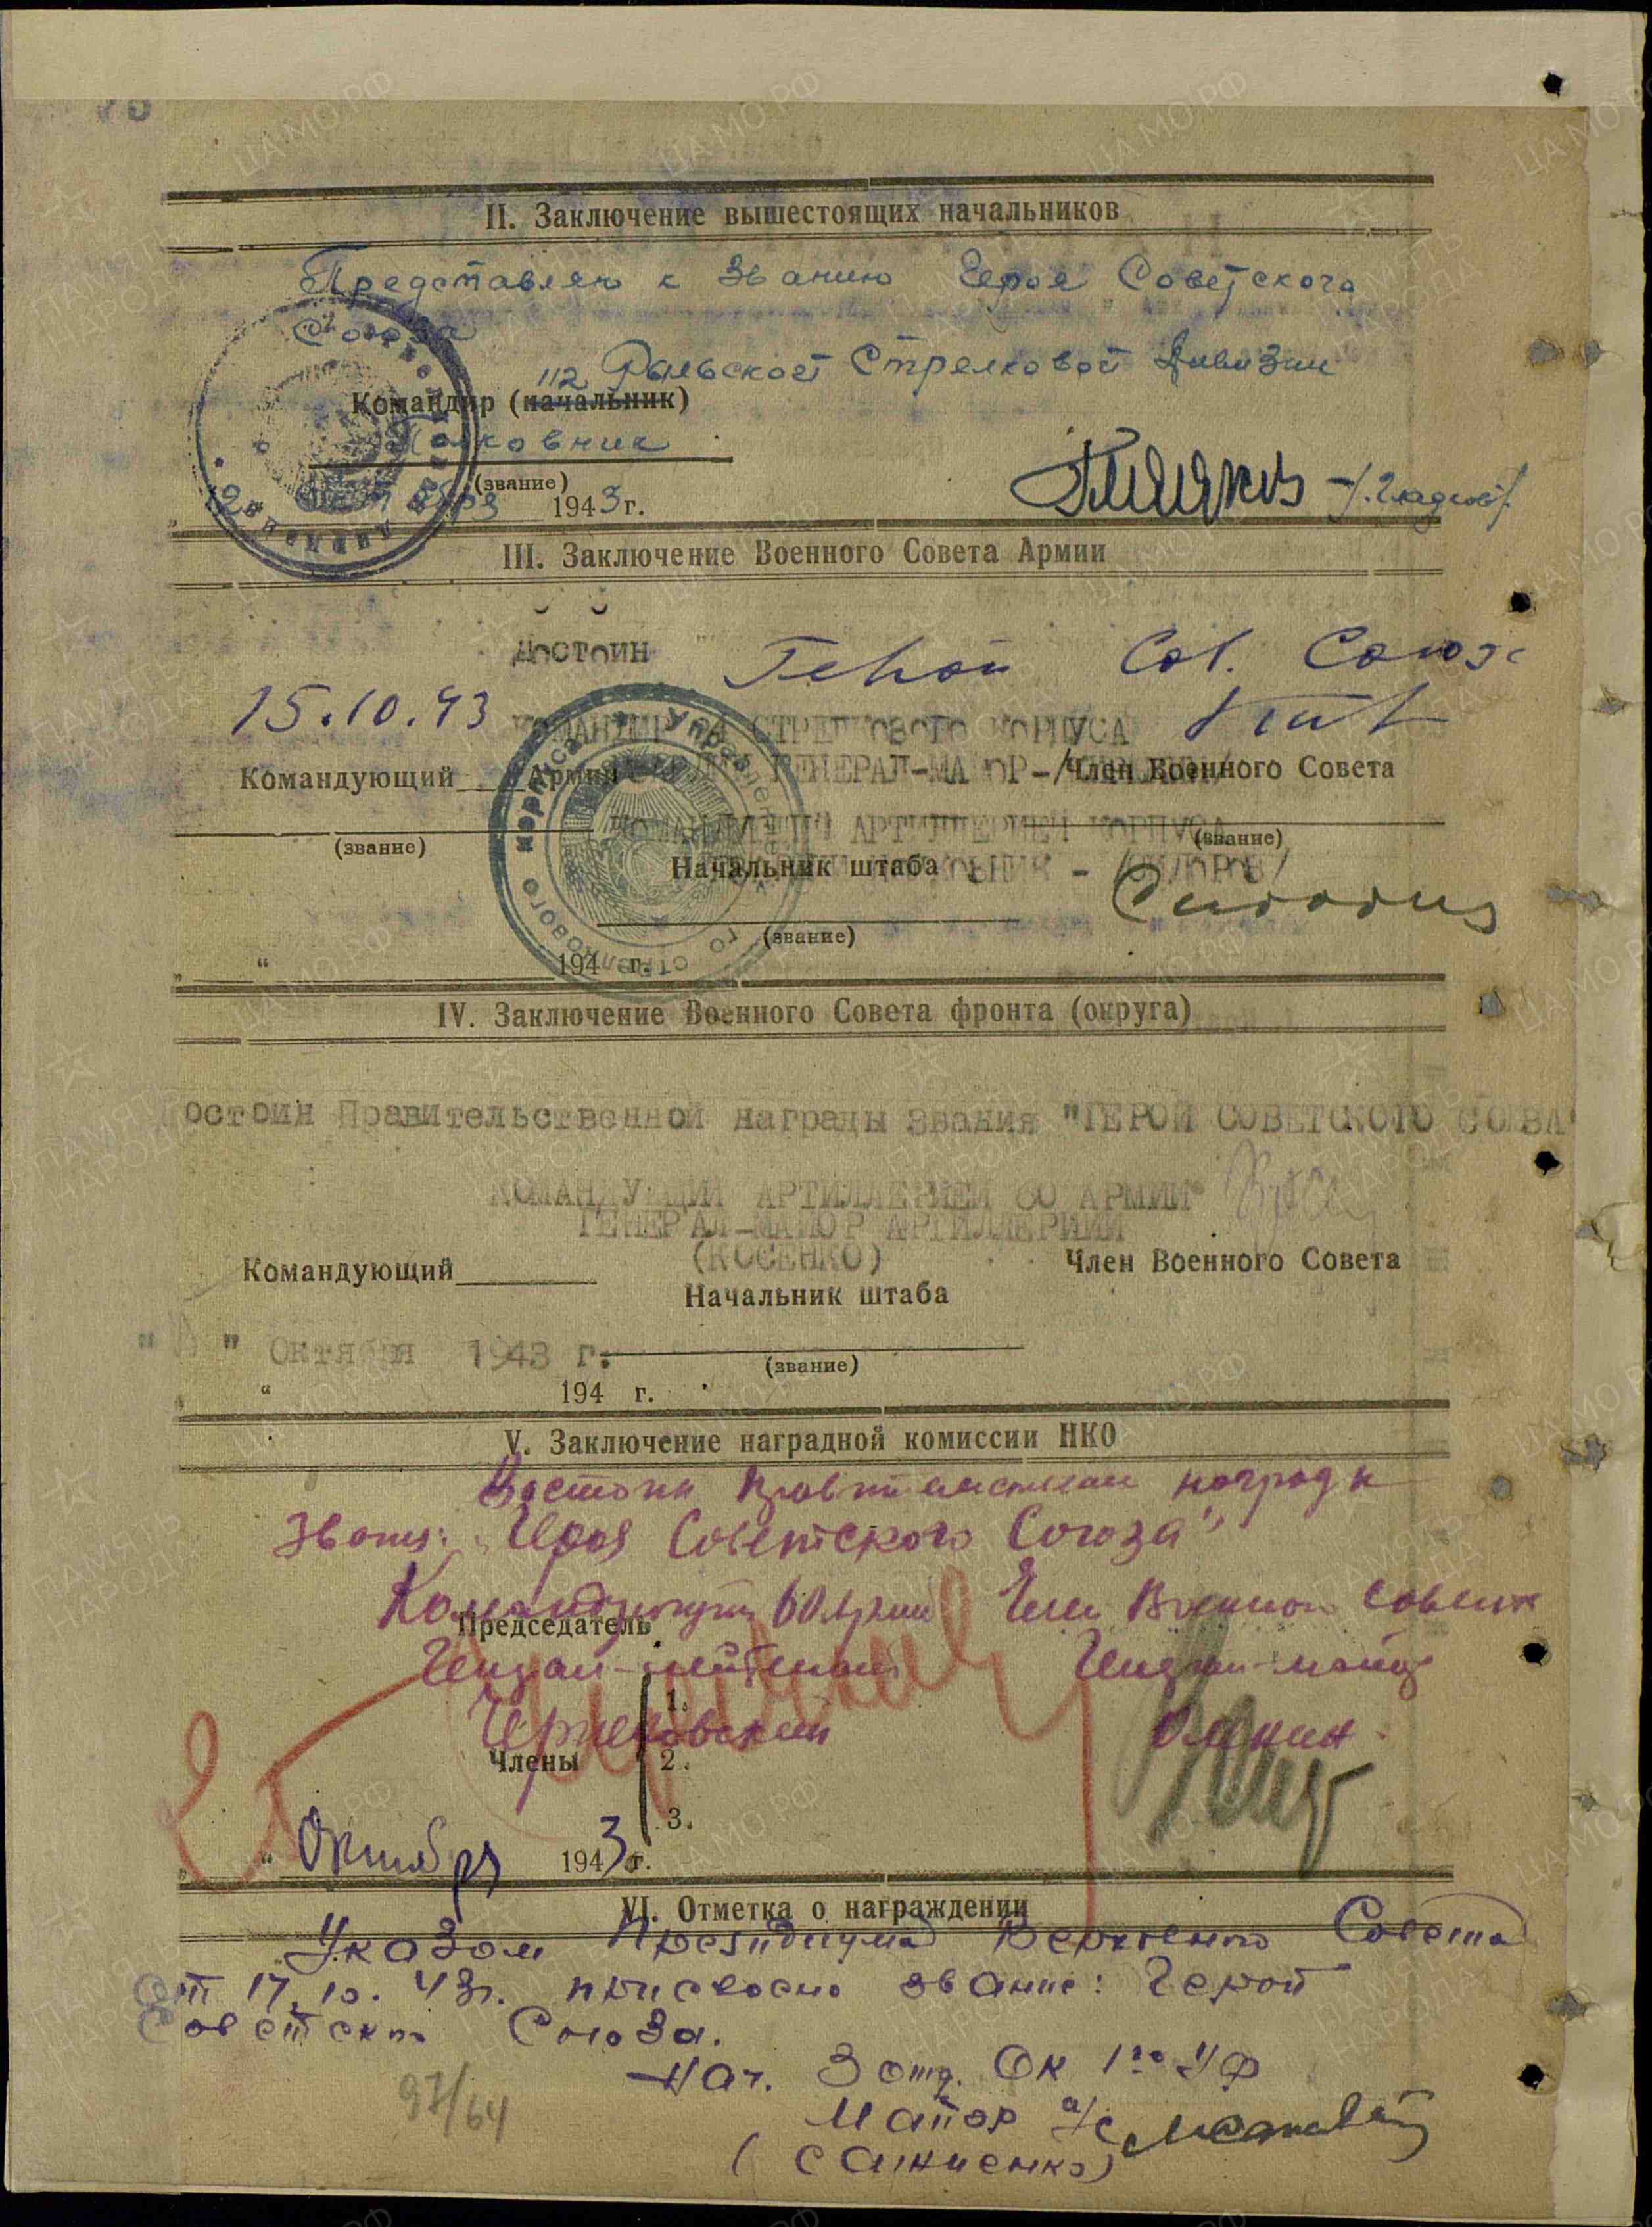 II. Заключение вышестоящих начальников
Представляю к званию Героя Советского
Союза
112 Рыльской Стрелковой Дивизии
Командир (начальник)
Полковник
(звание)
1943 г.
/. Гладков /.
III. Заключение Военного Совета Армии
Достоин Герой Сов. Союза
15.10.43
КОМАНДИР 24 СТРЕЛКОВОГО КОРПУСА
ГЕНЕРАЛ-МАЙОР-/
Командующий Армии Член Военного Совета
КОМАНДУЮЩИЙ АРТИЛЛЕРИЕЙ КОРПУСА
(звание) (звание)
Начальник штаба
(звание)
„ “ 194 г.
IV. Заключение Военного Совета фронта (округа)
остоин Правительственной награды звания "ГЕРОЙ СОВЕТСКОГО СОЮЗА"
КОМАНДУЮЩИЙ АРТИЛЛЕРИЕЙ 60 АРМИИ
ГЕНЕРАЛ-МАЙОР АРТИЛЛЕРИИ
(КОСЕНКО)
Командующий Член Военного Совета
Начальник штаба
" " Октября 1943 г.
(звание)
„ “ 194 г.
V. Заключение наградной комиссии НКО
Достоин правительственной награды
звания: „Героя Советского Союза"
Командующий 60 Армии Член Военного Совета
Председатель
Генерал-лейтенант Генерал-майор
1.
Черняховский Оленин
Члены 2.
3.
„ “ Октября 1943 г.
VI. Отметка о награждении
Указом Президиума Верховного Совета
от 17.10.43г. присвоено звание: Герой
Советского Союза.
Нач. 3 отд. ОК 1го УФ
Майор а/с
(Сажиенко)
97/64